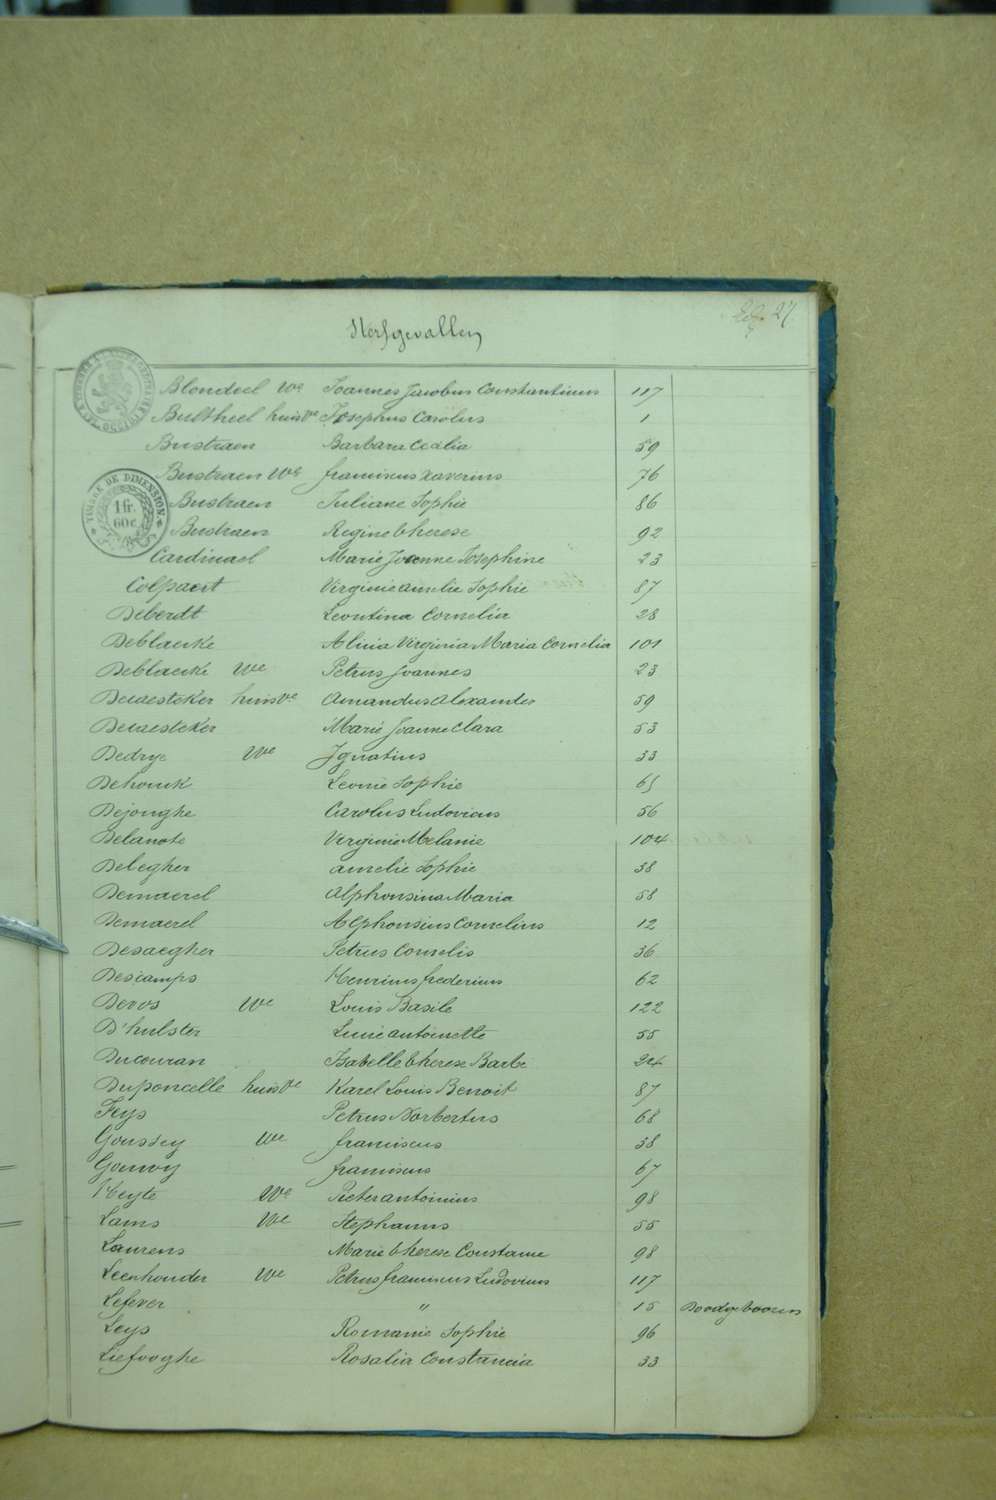 27
Sterfgevallen
TIMBRE DE DIMENSION
1 fr.
60 c.
Blondeel We Joannes Jacobus Constantinus 117
Bultheel huisve Josephus Carolus 1
Bustraen Barbara Cecilia 59
Bustraen We franciscus Xaverius 76
Bustraen Juliane Sophie 86
Bustraen Regine Therese 92
Cardinael Marie Joanne Josephine 23
Colpaert Virginie Amelie Sophie 87
Deberdt Leontina Cornelia 28
Deblauke Alicia Virginia Maria Cornelia 101
Deblaeke We Petrus Joannes 23
Decaesteker huisve Amandus Alexander 59
Decaesteker Marie Joanne Clara 53
Dedrye We Ignatius 33
Dehouck Leonie Sophie 65
Dejonghe Carolus Ludovicus 56
Delanote Virginie Melanie 104
Delegher Amelie Sophie 38
Demaerel Alphonsina Maria 58
Demaerel Alphonsius Cornelius 12
Desaegher Petrus Cornelis 36
Descamps Henricus fredericus 62
Devos We Louis Basile 122
D'hulster Lucie Antoinette 55
Ducouran Isabelle Therese Barbe 24
Duponcelle huisve Karel Louis Benoit 87
Feys Petrus Norbertus 68
Goussey We franciscus 38
Gouwy franciscus 67
Heyte We Pieter Antonius 98
Lams We Stephanus 55
Laurens Marie Therese Constance 98
Leenhouder We Petrus franciscus Ludovicus 117
Lefever " 15 Doodgeboren
Leys Romanie Sophie 96
Liefooghe Rosalia Constancia 33